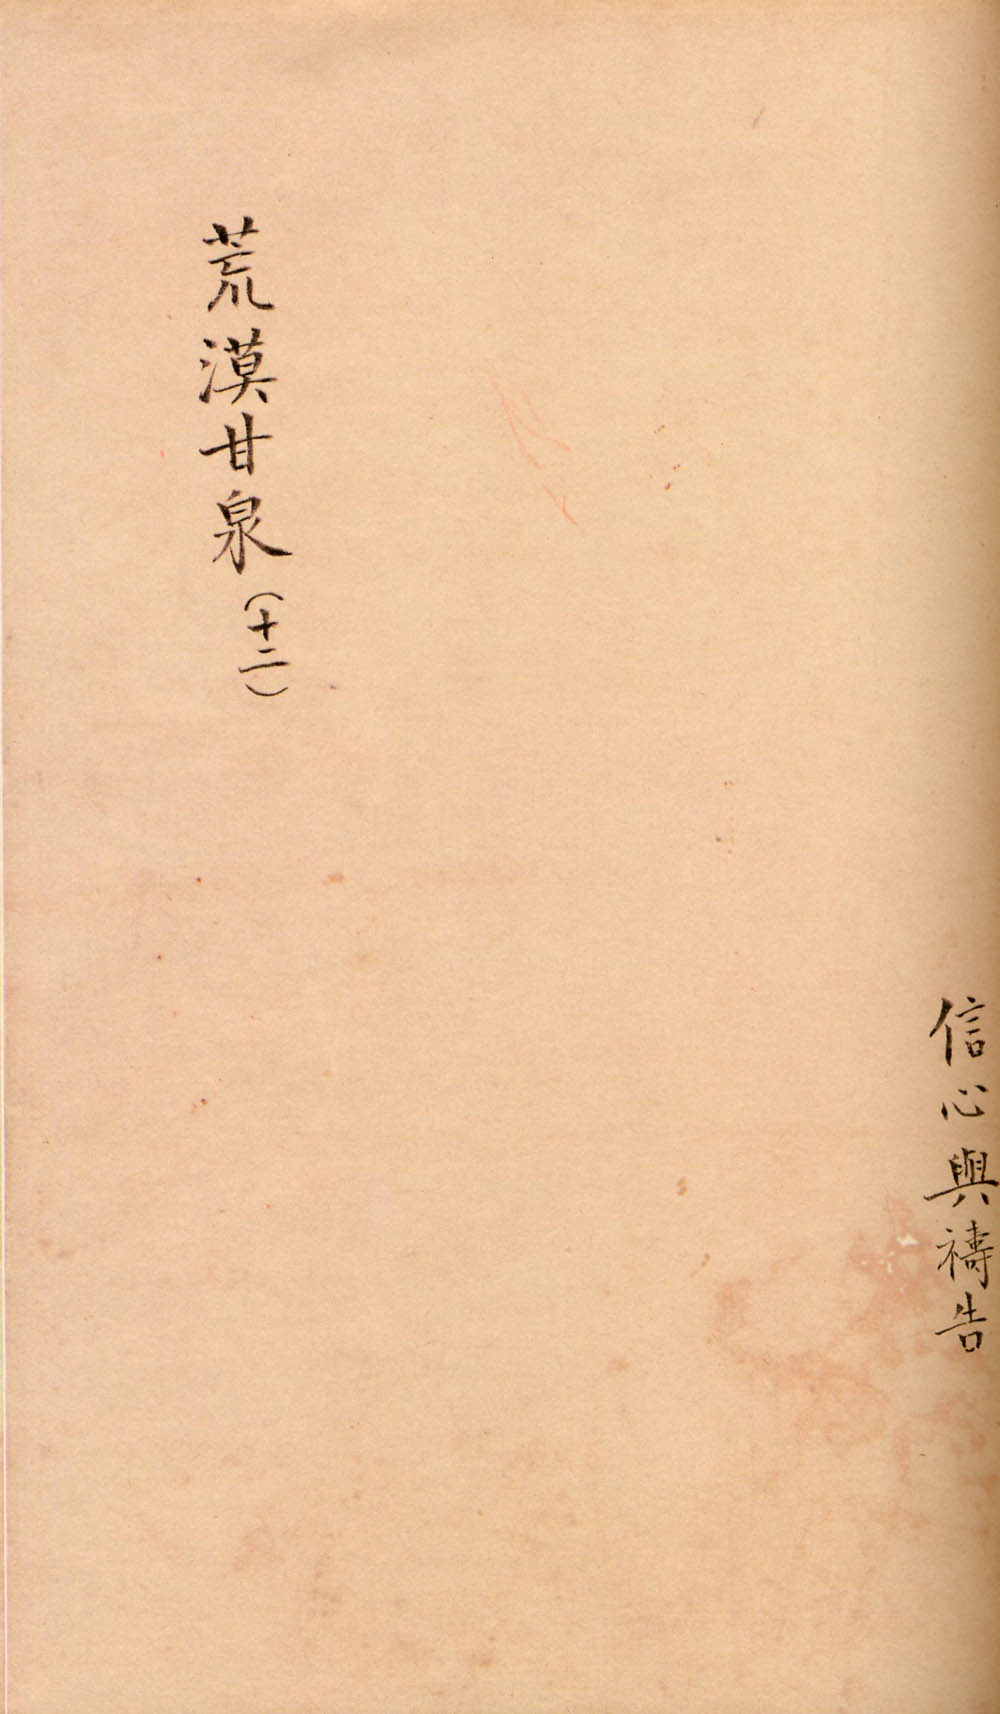 信心與禱告
荒漠甘泉(十二)